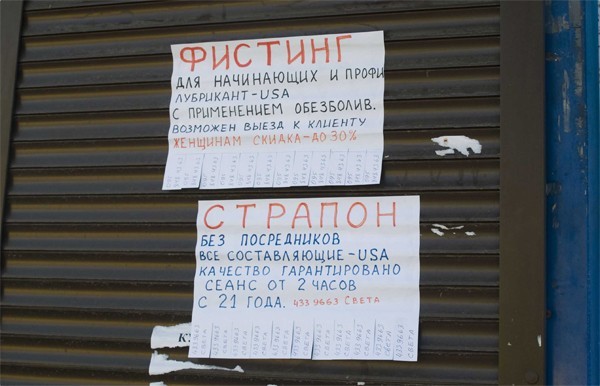 ФИСТИНГ
ДЛЯ НАЧИНАЮЩИХ И ПРОФИ
ЛУБРИКАНТ-USA
С ПРИМЕНЕНИЕМ ОБЕЗБОЛИВ.
ВОЗМОЖЕН ВЫЕЗД К КЛИЕНТУ
ЖЕНЩИНАМ СКИДКА-ДО 30%
СТРАПОН
БЕЗ ПОСРЕДНИКОВ
ВСЕ СОСТАВЛЯЮЩИЕ-USA
КАЧЕСТВО ГАРАНТИРОВАНО
СЕАНС ОТ 2 ЧАСОВ
С 21 ГОДА. 433 9663 СВЕТА